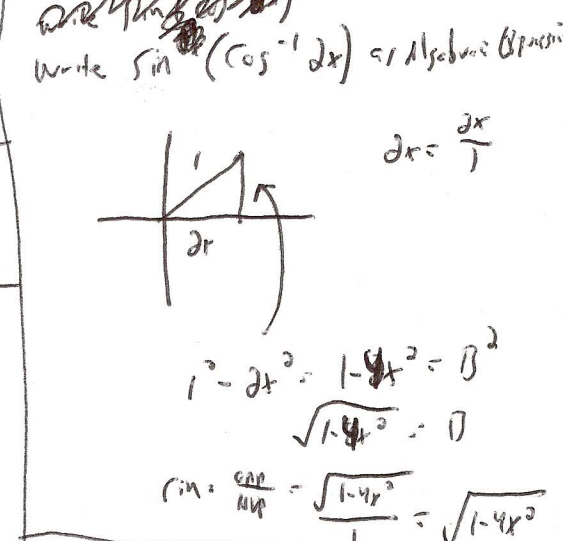 write
Write sin (Cos⁻¹ 2x) as Algebraic Expressi
2x = 2x/1
1
2x
1² - 2x² = 1-4x² = B²
√1-4x² = B
sin = opp/hyp = √1-4x²/1 = √1-4x²